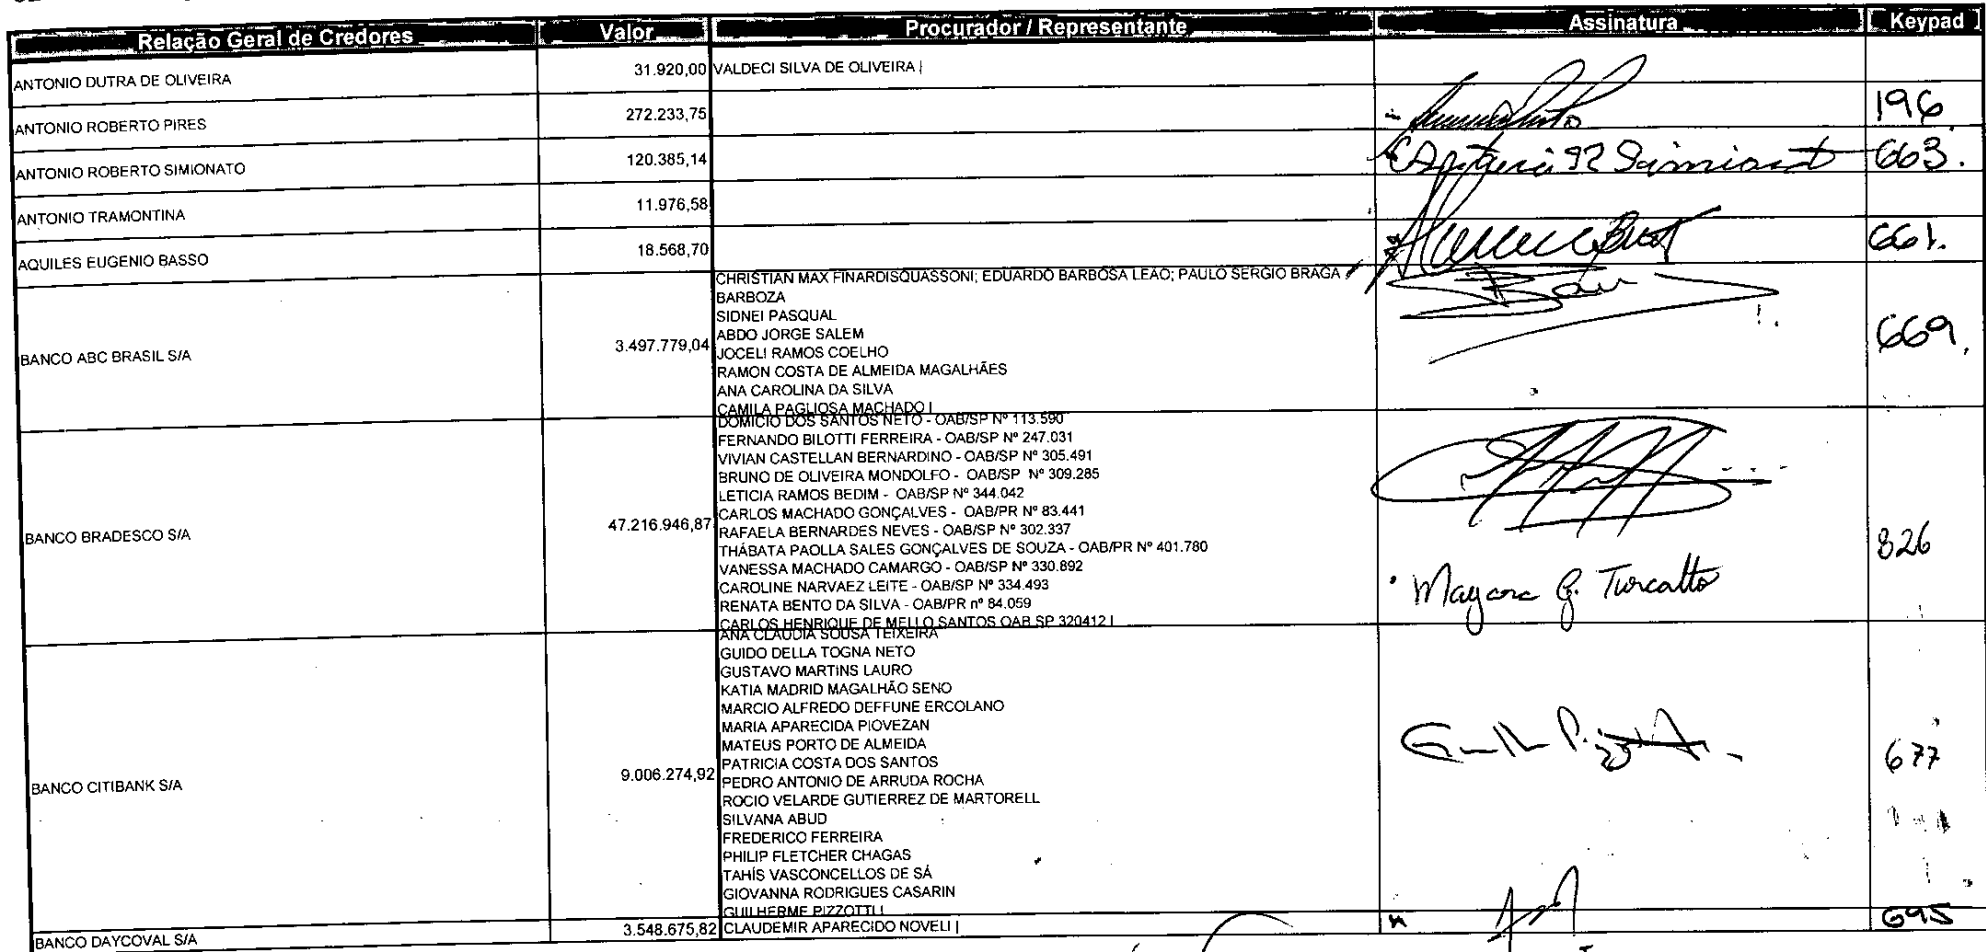 Relação Geral de Credores Valor Procurador / Representante Assinatura Keypad
ANTONIO DUTRA DE OLIVEIRA 31.920,00 VALDECI SILVA DE OLIVEIRA |
ANTONIO ROBERTO PIRES 272.233,75 196
ANTONIO ROBERTO SIMIONATO 120.385,14 663.
ANTONIO TRAMONTINA 11.976,58
AQUILES EUGENIO BASSO 18.568,70 661.
BANCO ABC BRASIL S/A 3.497.779,04
CHRISTIAN MAX FINARDISQUASSONI; EDUARDO BARBOSA LEAO; PAULO SERGIO BRAGA
BARBOZA
SIDNEI PASQUAL
ABDO JORGE SALEM
JOCELI RAMOS COELHO
RAMON COSTA DE ALMEIDA MAGALHÃES
ANA CAROLINA DA SILVA
CAMILA PAGLIOSA MACHADO |
669.
BANCO BRADESCO S/A 47.216.946,87
DOMICIO DOS SANTOS NETO - OAB/SP Nº 113.590
FERNANDO BILOTTI FERREIRA - OAB/SP Nº 247.031
VIVIAN CASTELLAN BERNARDINO - OAB/SP Nº 305.491
BRUNO DE OLIVEIRA MONDOLFO - OAB/SP Nº 309.285
LETICIA RAMOS BEDIM - OAB/SP Nº 344.042
CARLOS MACHADO GONÇALVES - OAB/PR Nº 83.441
RAFAELA BERNARDES NEVES - OAB/SP Nº 302.337
THÁBATA PAOLLA SALES GONÇALVES DE SOUZA - OAB/PR Nº 401.780
VANESSA MACHADO CAMARGO - OAB/SP Nº 330.892
CAROLINE NARVAEZ LEITE - OAB/SP Nº 334.493
RENATA BENTO DA SILVA - OAB/PR nº 84.059
CARLOS HENRIQUE DE MELLO SANTOS OAB SP 320412 |
Mayara G. Turcatto
826
BANCO CITIBANK S/A 9.006.274,92
ANA CLAUDIA SOUSA TEIXEIRA
GUIDO DELLA TOGNA NETO
GUSTAVO MARTINS LAURO
KATIA MADRID MAGALHÃO SENO
MARCIO ALFREDO DEFFUNE ERCOLANO
MARIA APARECIDA PIOVEZAN
MATEUS PORTO DE ALMEIDA
PATRICIA COSTA DOS SANTOS
PEDRO ANTONIO DE ARRUDA ROCHA
ROCIO VELARDE GUTIERREZ DE MARTORELL
SILVANA ABUD
FREDERICO FERREIRA
PHILIP FLETCHER CHAGAS
TAHÍS VASCONCELLOS DE SÁ
GIOVANNA RODRIGUES CASARIN
GUILHERME PIZZOTTI |
677
BANCO DAYCOVAL S/A 3.548.675,82 CLAUDEMIR APARECIDO NOVELI | 695